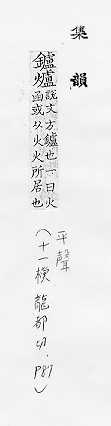 集韻
鑪爐說文方鑪也一曰火
函或从火火所居也
平聲
(十一模 龍都切. P87)